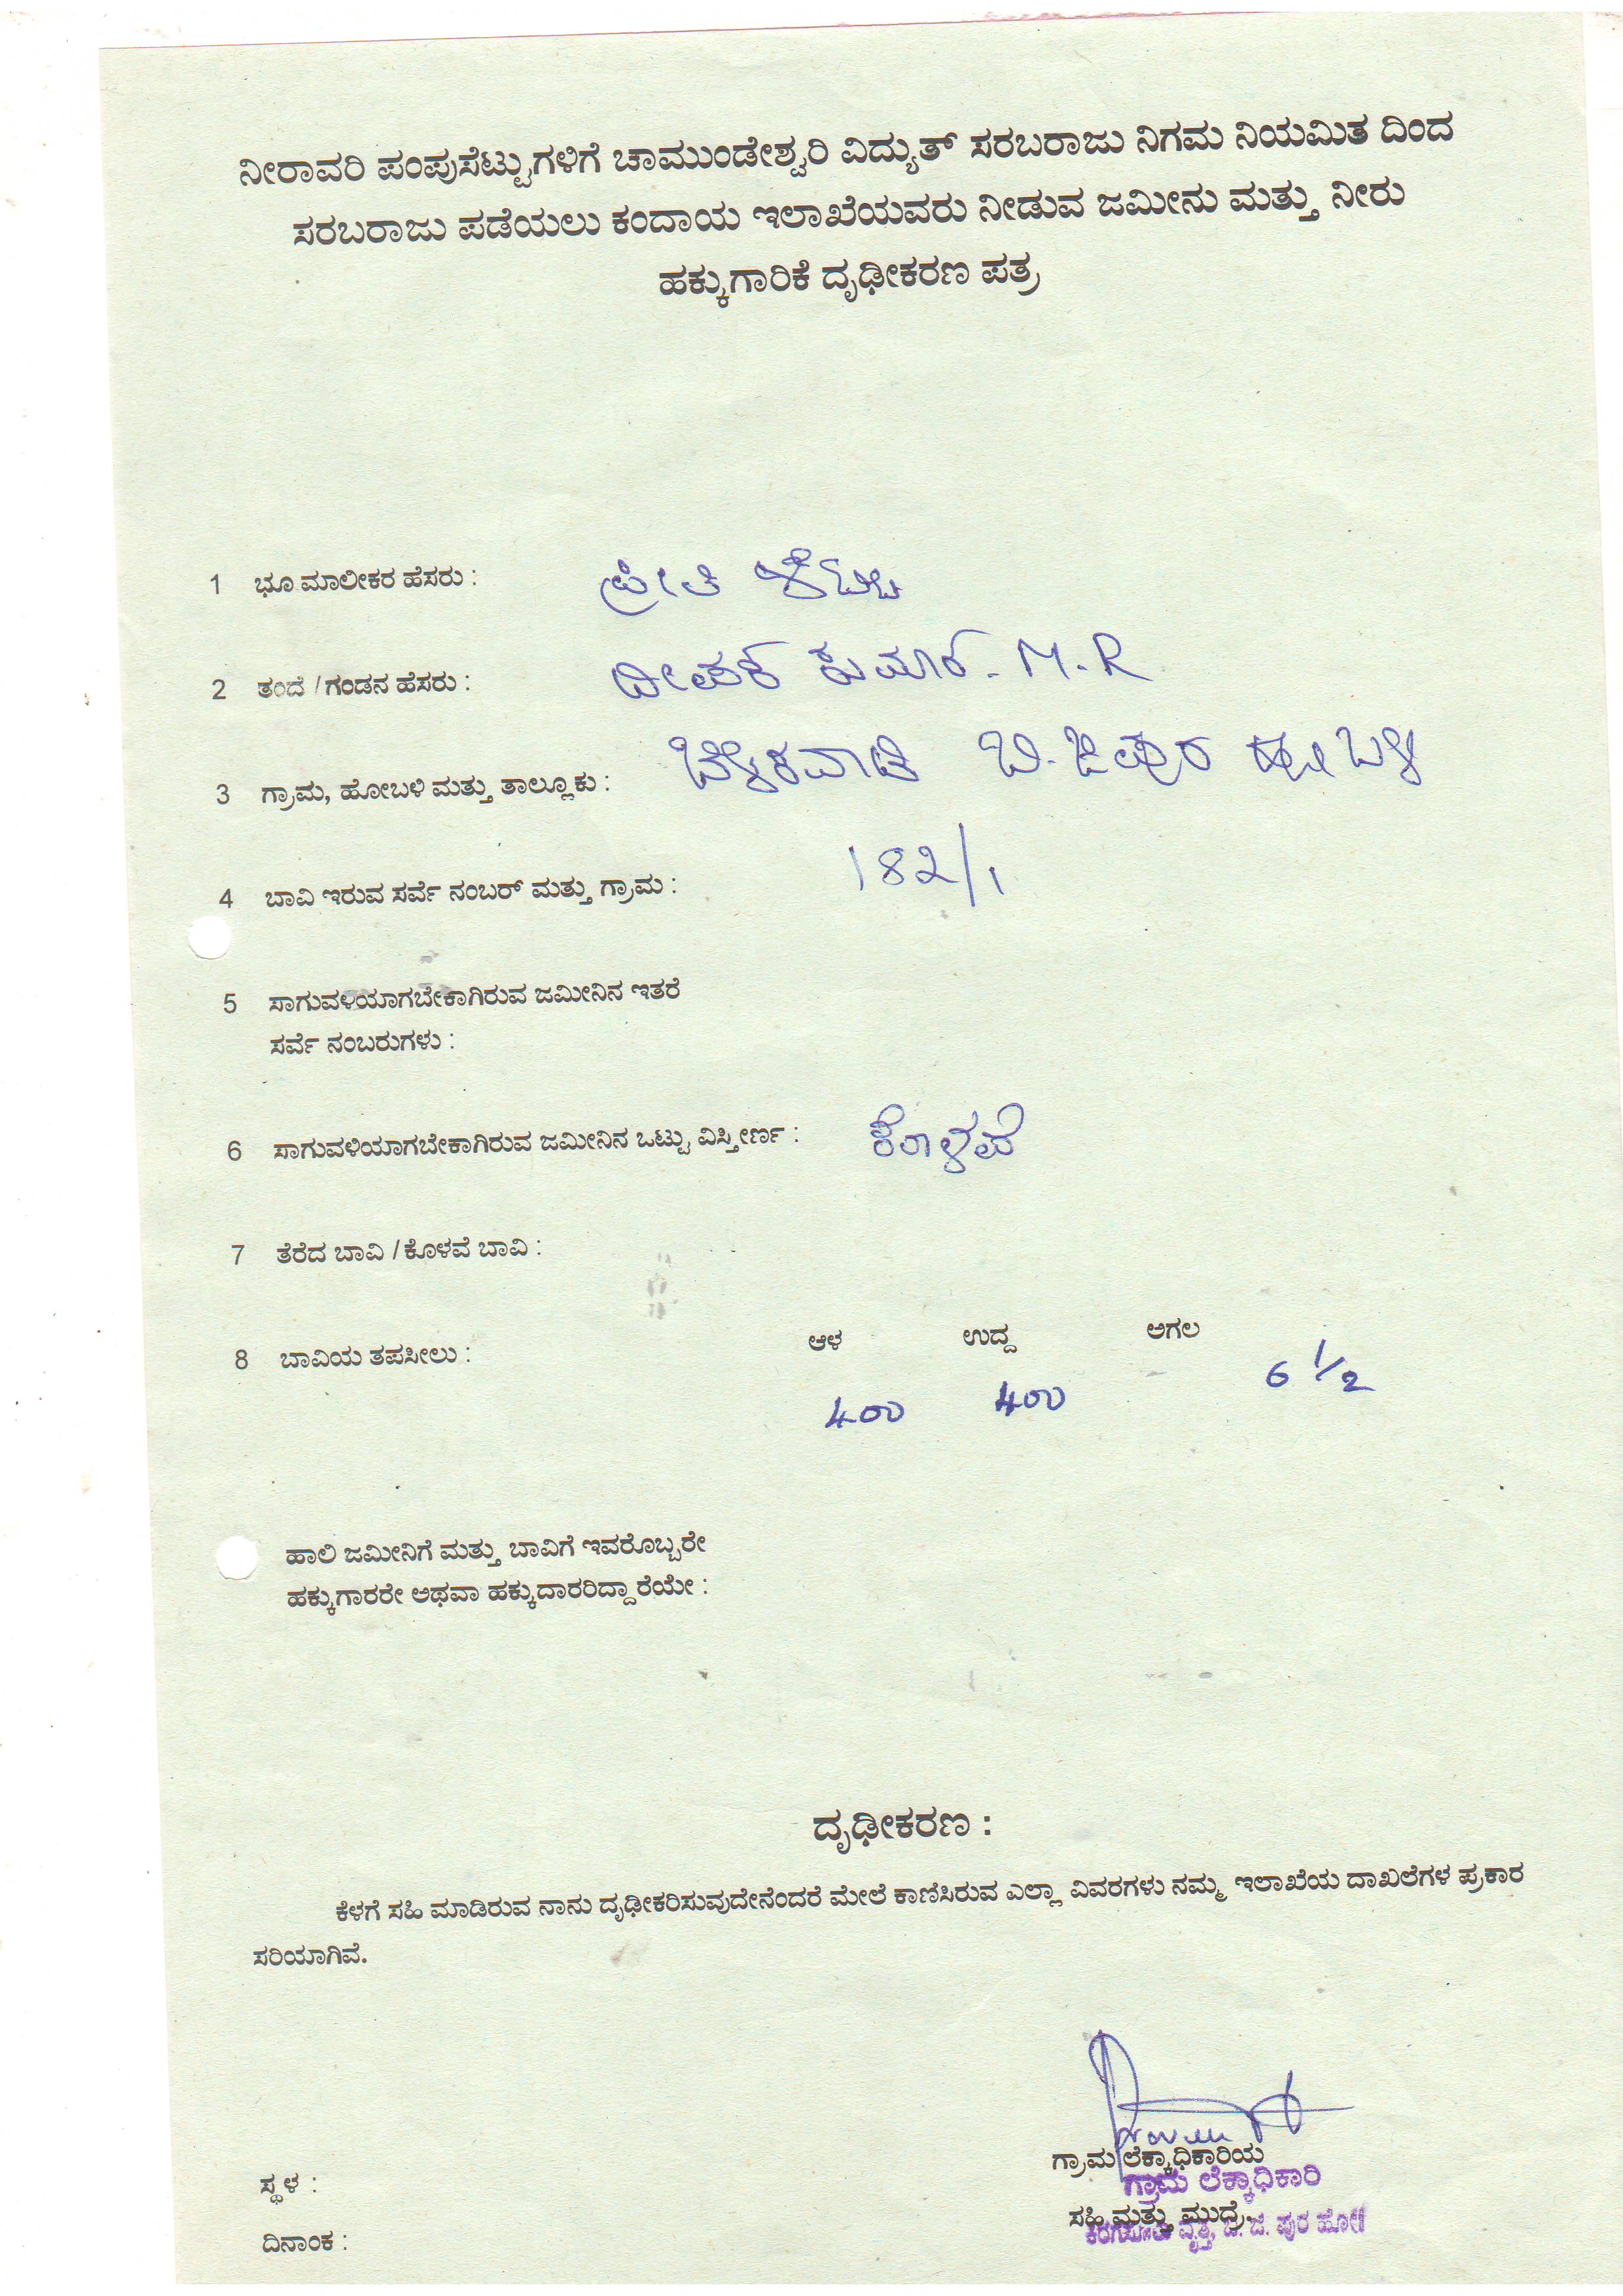 ನೀರಾವರಿ ಪಂಪುಸೆಟ್ಟುಗಳಿಗೆ ಚಾಮುಂಡೇಶ್ವರಿ ವಿದ್ಯುತ್ ಸರಬರಾಜು ನಿಗಮ ನಿಯಮಿತ ದಿಂದ
ಸರಬರಾಜು ಪಡೆಯಲು ಕಂದಾಯ ಇಲಾಖೆಯವರು ನೀಡುವ ಜಮೀನು ಮತ್ತು ನೀರು
ಹಕ್ಕುಗಾರಿಕೆ ದೃಢೀಕರಣ ಪತ್ರ
1 ಭೂ ಮಾಲೀಕರ ಹೆಸರು : ಪ್ರೀತಿ
2 ತಂದೆ / ಗಂಡನ ಹೆಸರು : ದೀಪಕ್ ಕುಮಾರ್. M.R
3 ಗ್ರಾಮ, ಹೋಬಳಿ ಮತ್ತು ತಾಲ್ಲೂಕು : ಬಿ.ಜಿಪುರ ಹೋಬಳಿ
4 ಬಾವಿ ಇರುವ ಸರ್ವೆ ನಂಬರ್ ಮತ್ತು ಗ್ರಾಮ : 182/1
5 ಸಾಗುವಳಿಯಾಗಬೇಕಾಗಿರುವ ಜಮೀನಿನ ಇತರೆ
ಸರ್ವೆ ನಂಬರುಗಳು :
6 ಸಾಗುವಳಿಯಾಗಬೇಕಾಗಿರುವ ಜಮೀನಿನ ಒಟ್ಟು ವಿಸ್ತೀರ್ಣ : ಕೊಳವೆ
7 ತೆರೆದ ಬಾವಿ / ಕೊಳವೆ ಬಾವಿ :
8 ಬಾವಿಯ ತಪಸೀಲು : ಆಳ ಉದ್ದ ಅಗಲ
400 400 6 1/2
ಹಾಲಿ ಜಮೀನಿಗೆ ಮತ್ತು ಬಾವಿಗೆ ಇವರೊಬ್ಬರೇ
ಹಕ್ಕುಗಾರರೇ ಅಥವಾ ಹಕ್ಕುದಾರರಿದ್ದಾರೆಯೇ :
ದೃಢೀಕರಣ :
ಕೆಳಗೆ ಸಹಿ ಮಾಡಿರುವ ನಾನು ದೃಢೀಕರಿಸುವುದೇನೆಂದರೆ ಮೇಲೆ ಕಾಣಿಸಿರುವ ಎಲ್ಲಾ ವಿವರಗಳು ನಮ್ಮ ಇಲಾಖೆಯ ದಾಖಲೆಗಳ ಪ್ರಕಾರ
ಸರಿಯಾಗಿವೆ.
ಗ್ರಾಮ ಲೆಕ್ಕಾಧಿಕಾರಿಯ
ಸ್ಥಳ : ಗ್ರಾಮ ಲೆಕ್ಕಾಧಿಕಾರಿ
ಸಹಿ ಮತ್ತು ಮುದ್ರೆ.
ದಿನಾಂಕ : ವೃತ್ತ, ಬಿ. ಜಿ. ಪುರ ಹೋ||